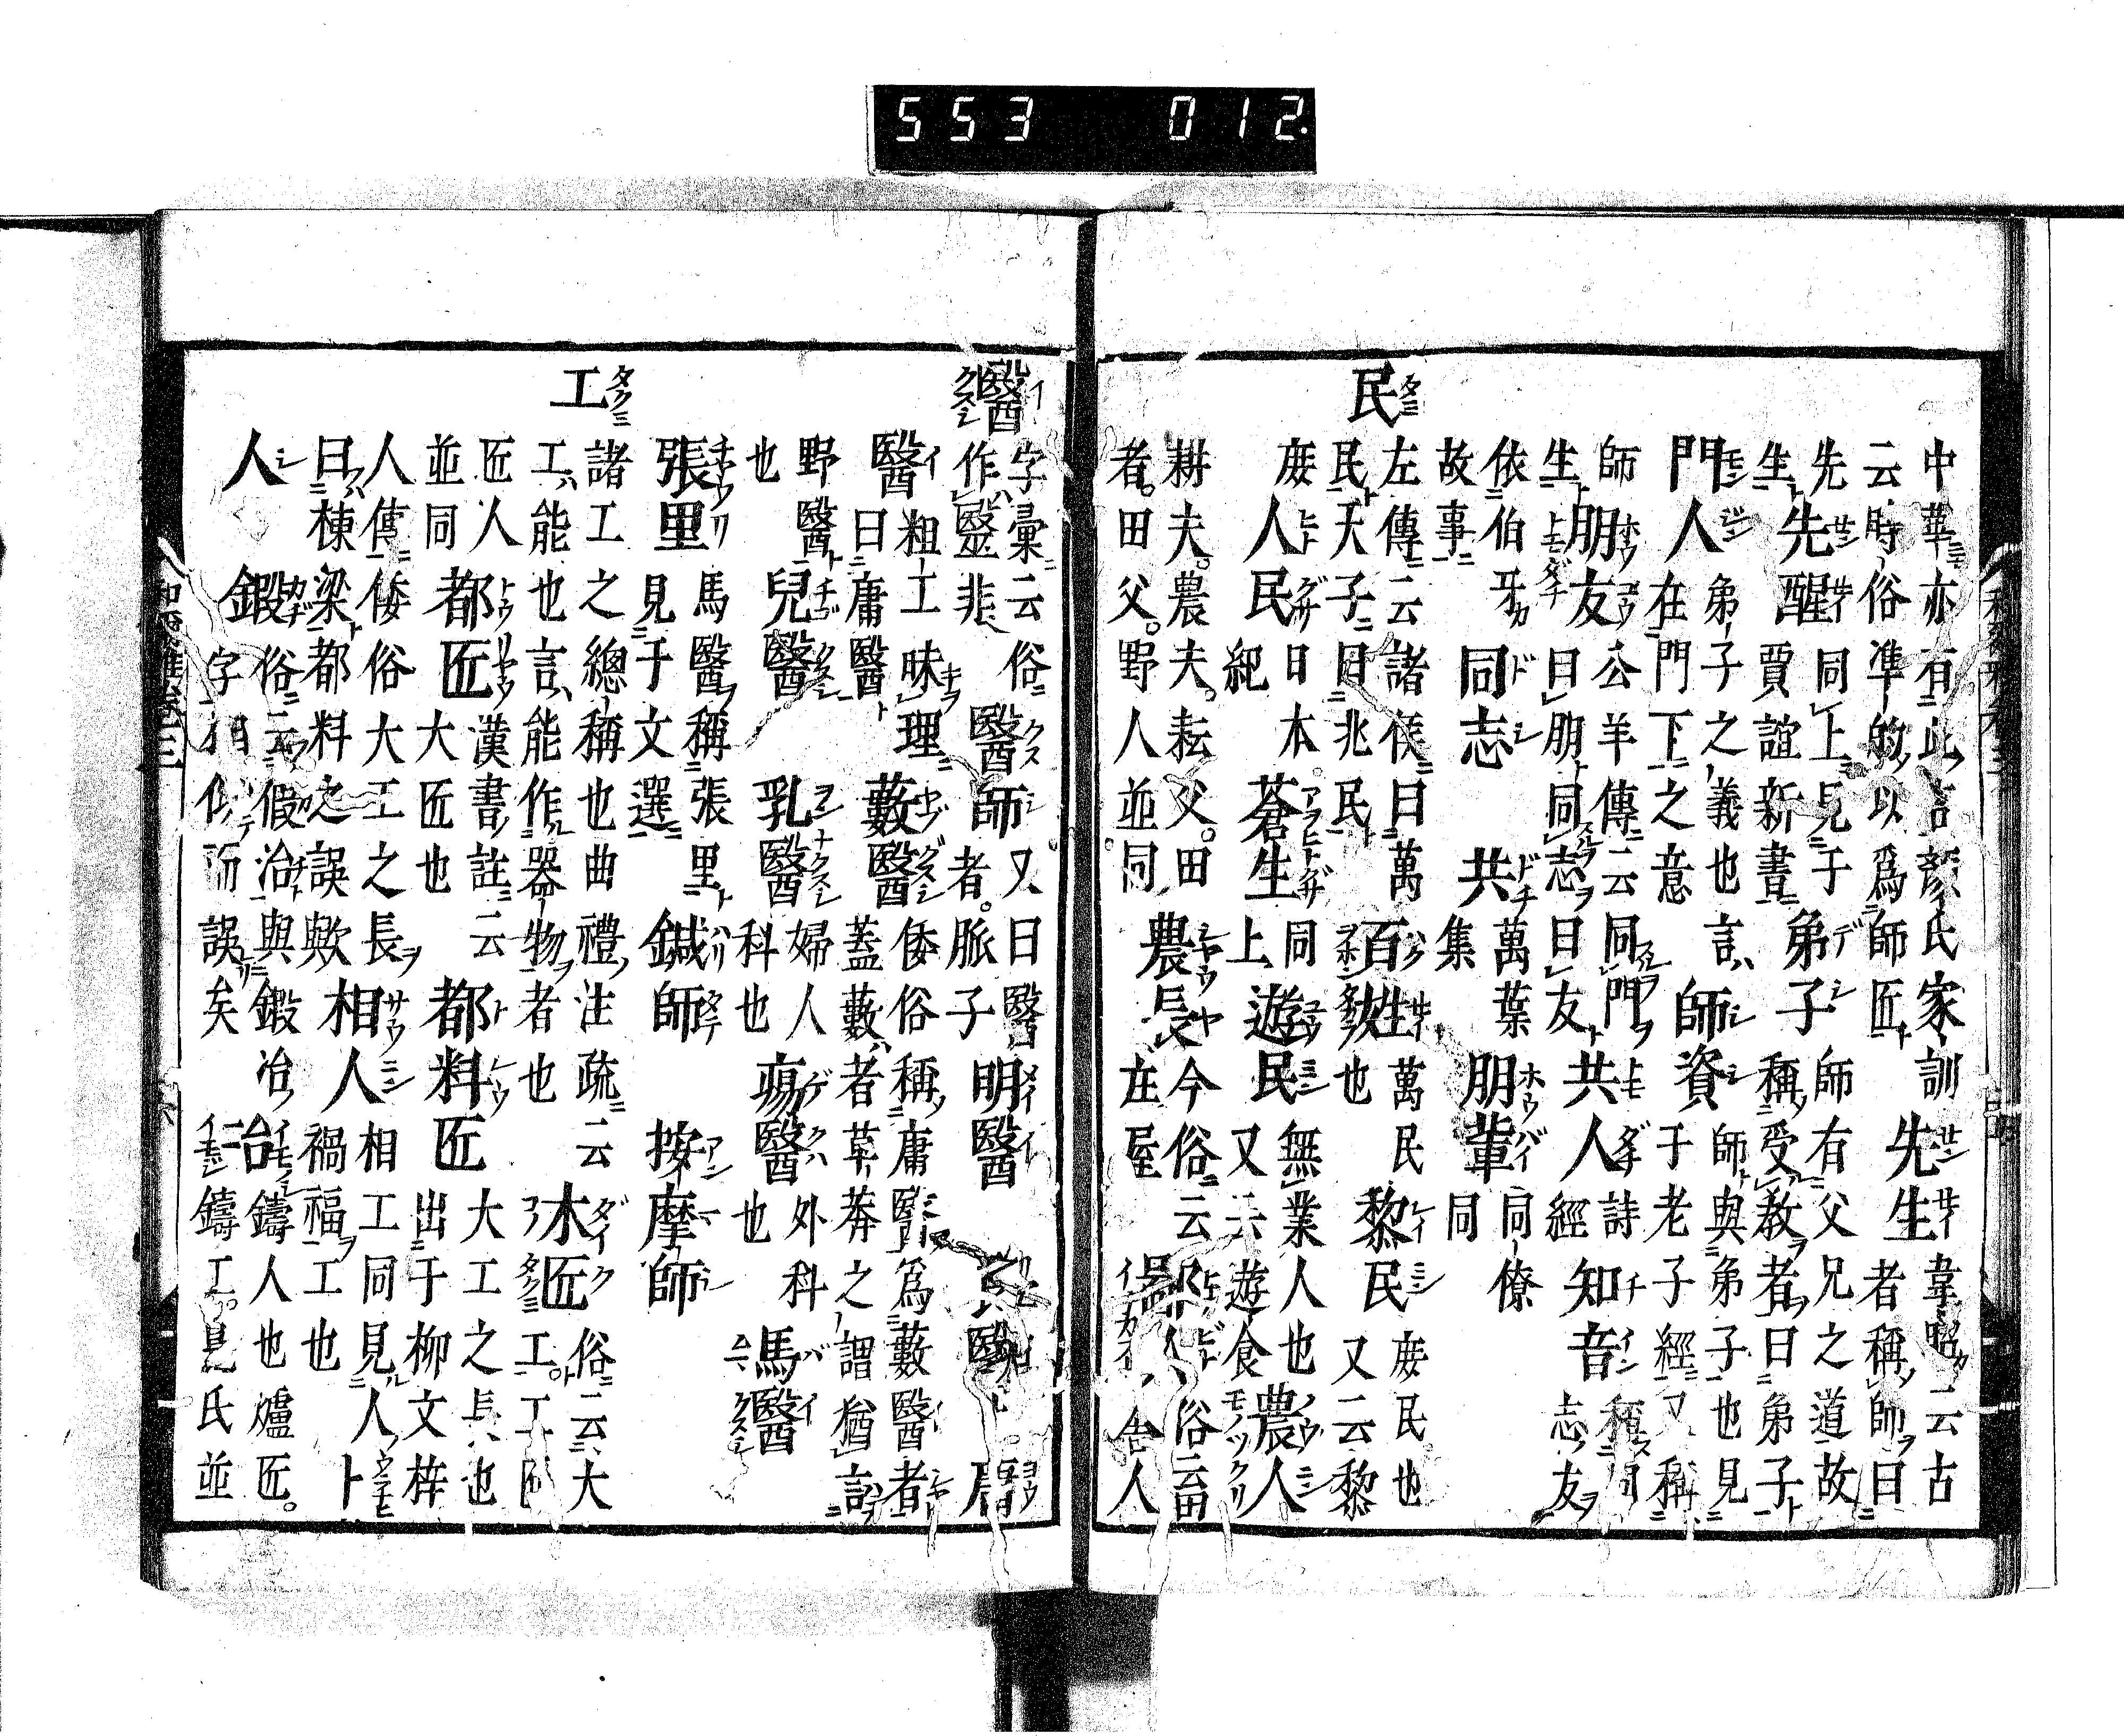 553 012.
中華亦有此言顏氏家訓
云時俗準的以爲師匠
先生 韋昭云古
者稱師曰
先生
先醒 同上見于
賈誼新書
弟子 師有父兄之道故
稱受教者曰弟子
門人 弟子之義也言
在門下之意
師資 師與弟子也見
于老子經又稱
師
朋友 公羊傳云同門
曰朋同志曰友
共人 詩經
知音 稱同
志友
生依伯牙
故事
同志
共 萬葉
集
朋輩 同僚
同
民
左傳云諸侯曰萬
民天子曰兆民
百姓 萬民
也
黎民 庶民也
又云黎
庶
人民 日本
紀
蒼生 同
上
遊民 無業人也
又云遊食
農人
耕夫。農夫。耘父。田
者。田父。野人並同
農長 今俗云
在屋
俗云畠
舍人
醫
字彙云俗
作醫非
醫師 又曰醫
者。脈子
明醫
良醫
庸
醫 粗工昧理
曰庸醫
藪醫 倭俗稱庸醫爲藪醫者
蓋藪者草莽之謂猶言
野醫
也
兒醫
乳醫 婦人
科也
瘍醫 外科
也
馬醫
張里 馬醫稱張里
見于文選
鍼師
按摩師
工
諸工之總稱也曲禮注疏云
工能也言能作器物者也
木匠 俗云大
工。工匠
匠人 漢書註云
並同
都匠 大匠也
都料匠 大工之長也
出于柳文梓
人傳倭俗大工之長
曰棟梁都料之誤歟
相人 相工同見人
禍福工也
卜
人
鍛 俗云假冶與鍛冶
字相似而誤矣
鑄人也爐匠。
鑄工。見氏並